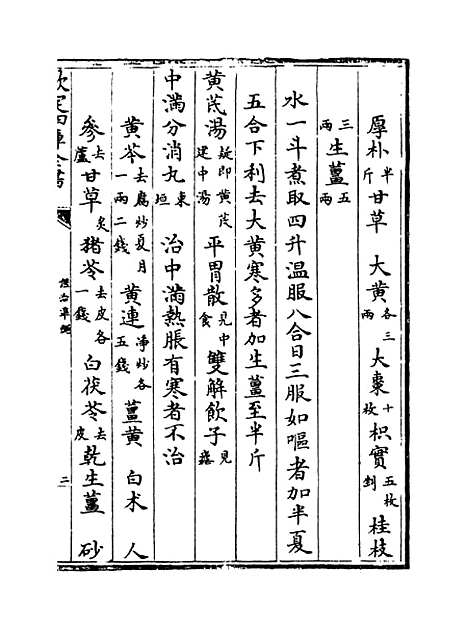 厚朴半斤甘草 大黃各三兩 大棗十枚枳實五枚剉 桂枝
三兩生薑五兩
水一斗煮取四升温服八合日三服如嘔者加半夏
五合下利去大黃寒多者加生薑至半斤
黃芪湯疑即黃芪建中湯 平胃散見中食 雙解飲子見瘧
中滿分消丸東垣 治中滿熱脹有寒者不治
黃芩去腐炒夏月一兩二錢 黃連淨炒各五錢 薑黃 白术 人
參去蘆甘草炙猪苓去皮各一錢 白茯苓去皮乾生薑 砂
欽定四庫全書 證治準繩 二